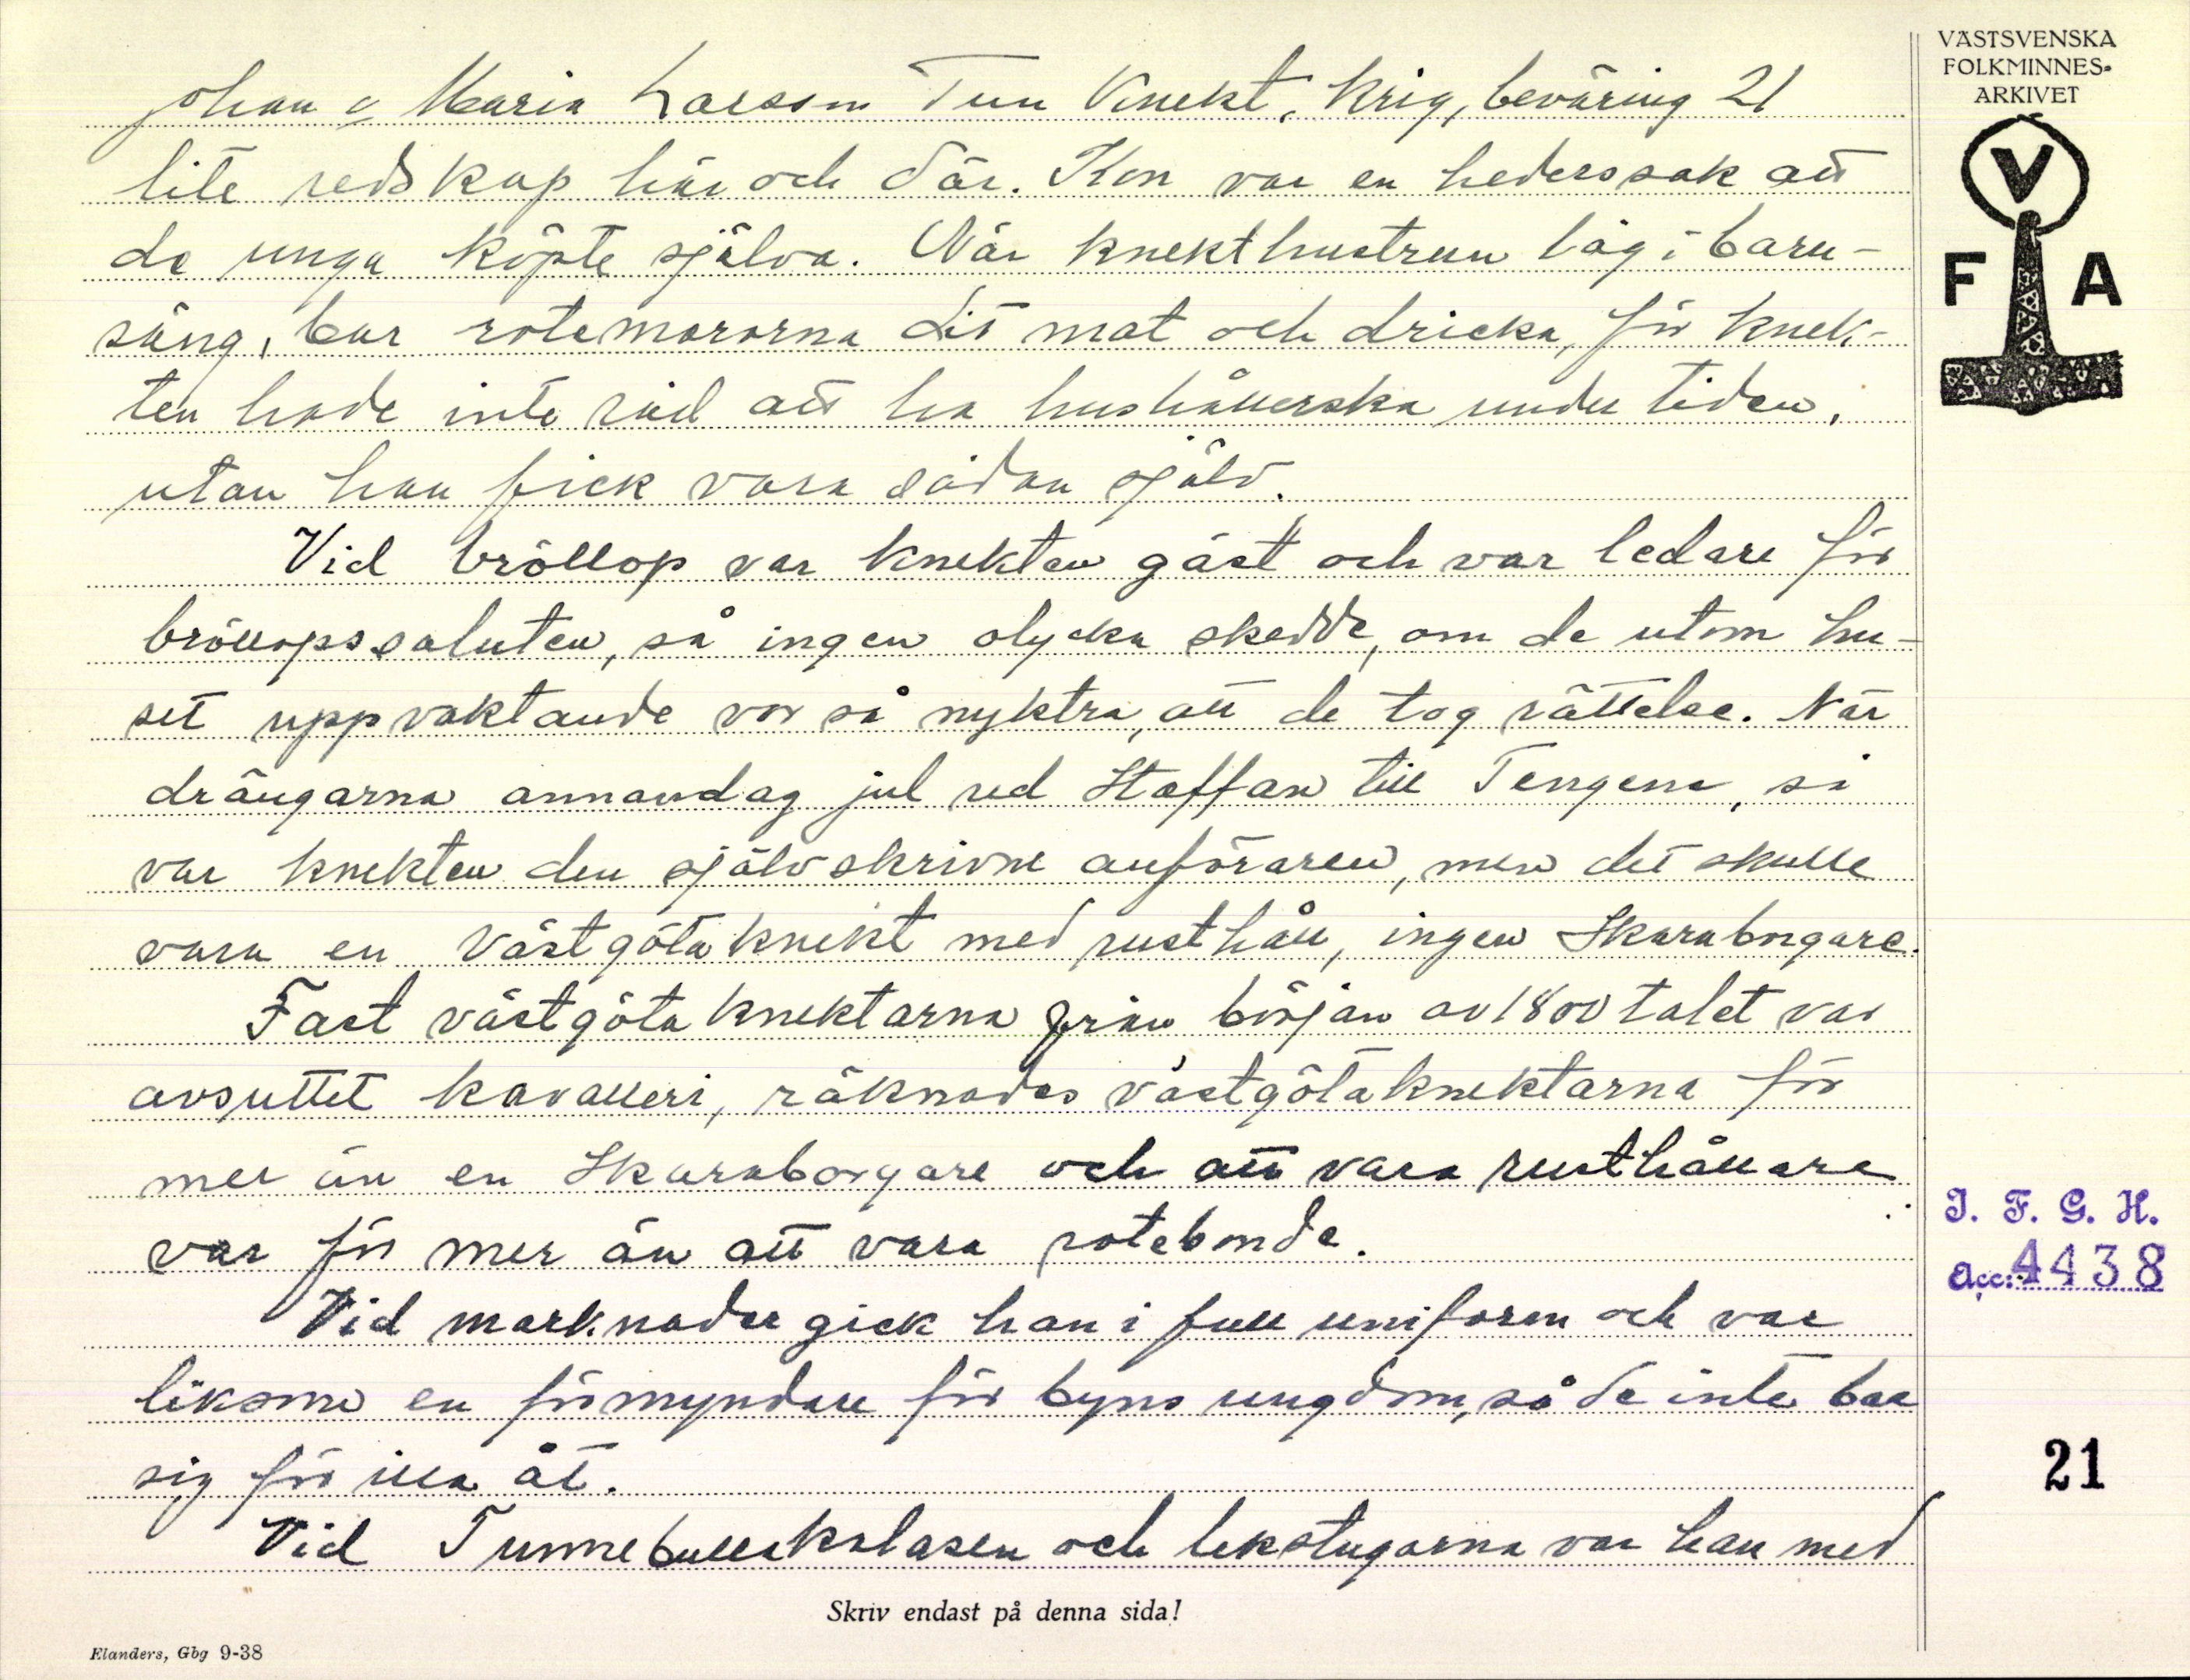 Johan o Maria Larsson Tun Knekt, krig, beväring 21
lite redskap här och där. Kon var en hederssak att
de unga köpte själva. När knekthustrun låg i barn-
säng, bar rotemororna dit mat och dricka, för knek-
ten hade inte råd att ha hushållerska under tiden,
utan han fick vara sådan själv.
Vid bröllop var knekten gäst och var ledare för
bröllopssaluten, så ingen olycka skedde, om de utom hu-
set uppvaktande vor så nyktra, att de tog rättelse. När
drängarna annandag jul red Staffan till Tengene, så
var knekten den självskrivne anföraren, men det skulle
vara en Västgötaknekt med rusthåll, ingen Skaraborgare.
Fast västgötaknektarna från början av 1800talet var
avsuttet kavalleri, räknades västgötaknektarna för
mer än en Skaraborgare och att vara rusthållare
var för mer än att vara rotebonde.
Vid marknader gick han i full uniform och var
liksom en förmyndare för byns ungdom, så de inte bar
sig för illa åt.
Vid Tunnebullakalasen och lekstugorna var han med
Skriv endast på denna sida!
Elanders, Gbg 9-38
VÄSTSVENSKA
FOLKMINNES-
ARKIVET
V
F A
I. F. G. H.
Acc: 4438
21